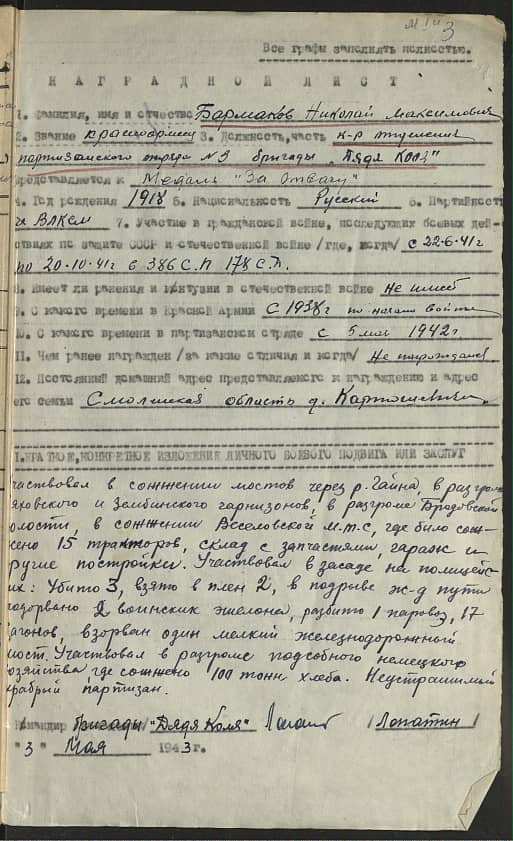 3
Все графы заполнять полностью.
НАГРАДНОЙ ЛИСТ
1. Фамилия, имя и отчество Бармаков Николай Максимович
2. Звание красноармеец 3. Должность, часть к-р отделения
партизанского отряда №3 бригады "Дядя Коля"
представляется к Медаль "За отвагу"
4. Год рождения 1918 5. Национальность Русский 6. Партийность
чл ВЛКСМ 7. Участие в гражданской войне, последующих боевых дей-
ствиях по защите СССР и отечественной войне /где, когда/ с 22-6-41г
по 20-10-41г в 386 С.П 178 С.Д.
8. Имеет ли ранения и контузии в отечественной войне Не имеет
9. С какого времени в Красной Армии С 1938г по начало войны
10. С какого времени в партизанском отряде с 5 мая 1942г
11. Чем ранее награжден /за какие отличия и когда/ Не награждался
12. Постоянный домашний адрес представляемого к награждению и адрес
его семьи Смоленская область д.
1. КРАТКОЕ, КОНКРЕТНОЕ ИЗЛОЖЕНИЯ ЛИЧНОГО БОЕВОГО ПОДВИГА ИЛИ ЗАСЛУГ
частвовал в сожжении мостов через р. Гайна, в разгроме
яховского и Зембинского гарнизонов, в разгроме Бродовской
олости, в сожжении Веселовской М.Т.С, где было сож-
жено 15 тракторов, склад с запчастями, гараж и
ругие постройки. Участвовал в засаде на полицей-
их: Убито 3, взято в плен 2, в подрыве ж-д пути
одорвано 2 воинских эшелона, разбито 1 паровоз, 17
агонов, взорван один мелкий железнодорожный
мост. Участвовал в разгроме подсобного немецкого
озяйства где сожжено 100 тонн хлеба. Неустрашимый
храбрый партизан.
Командир бригады "Дядя Коля" Лопатин /Лопатин/
"3" Мая 1943г.